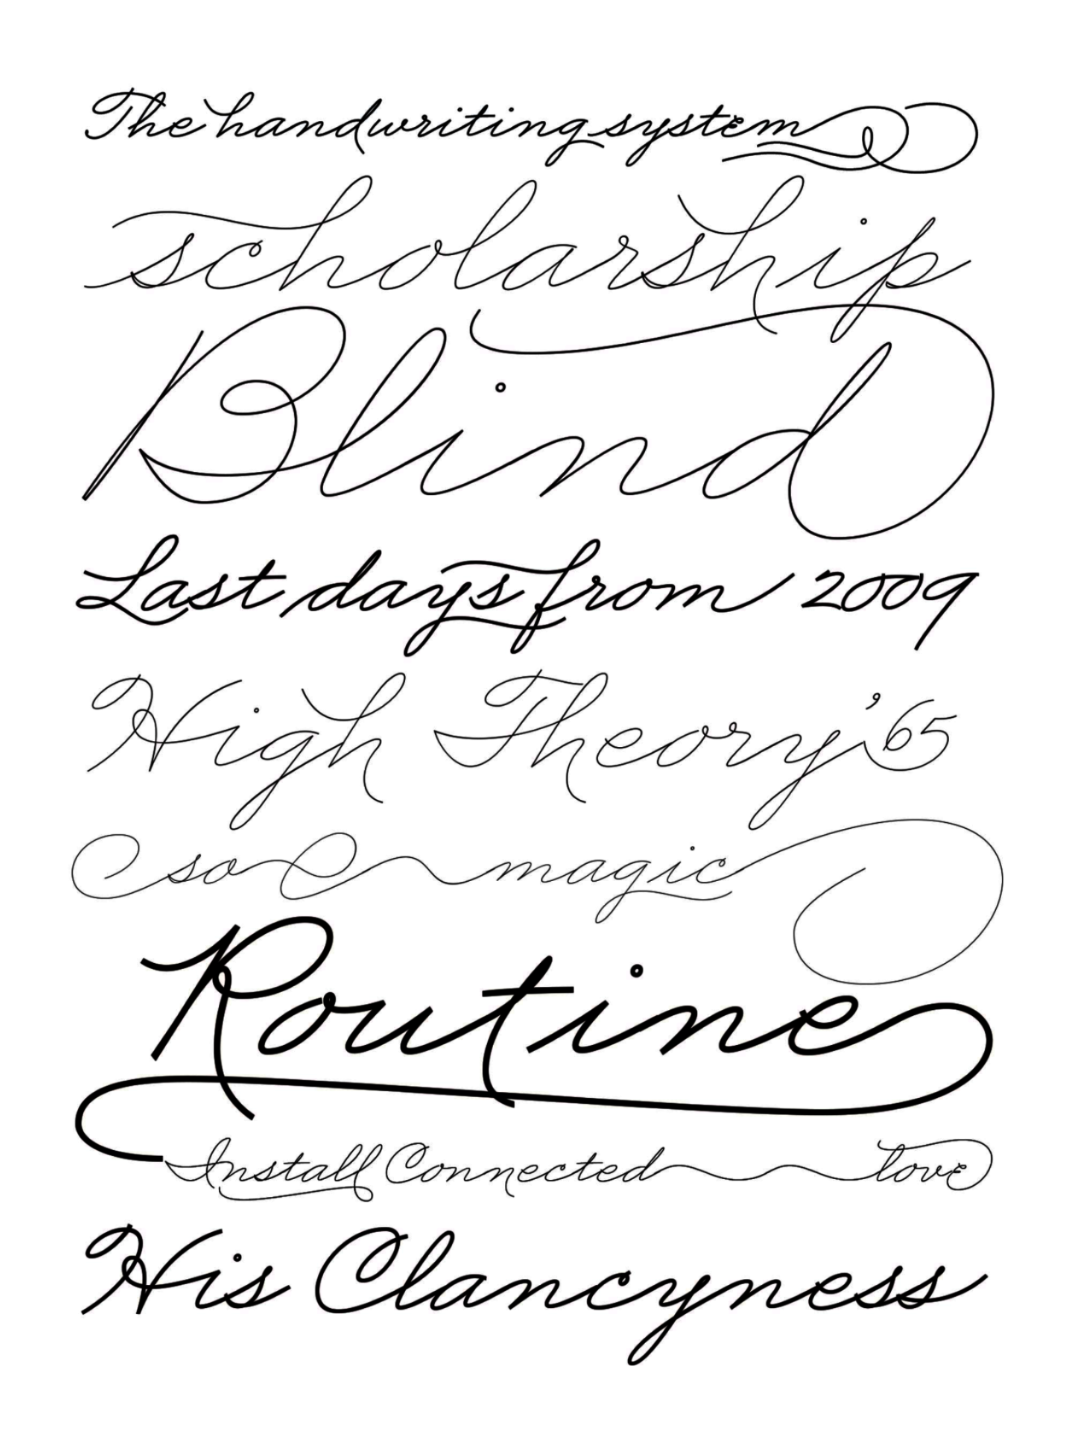 The handwriting system
scholarship
Blind
Last days from 2009
High Theory '65
so magic
Routine
Install Connected love
His Clancyness